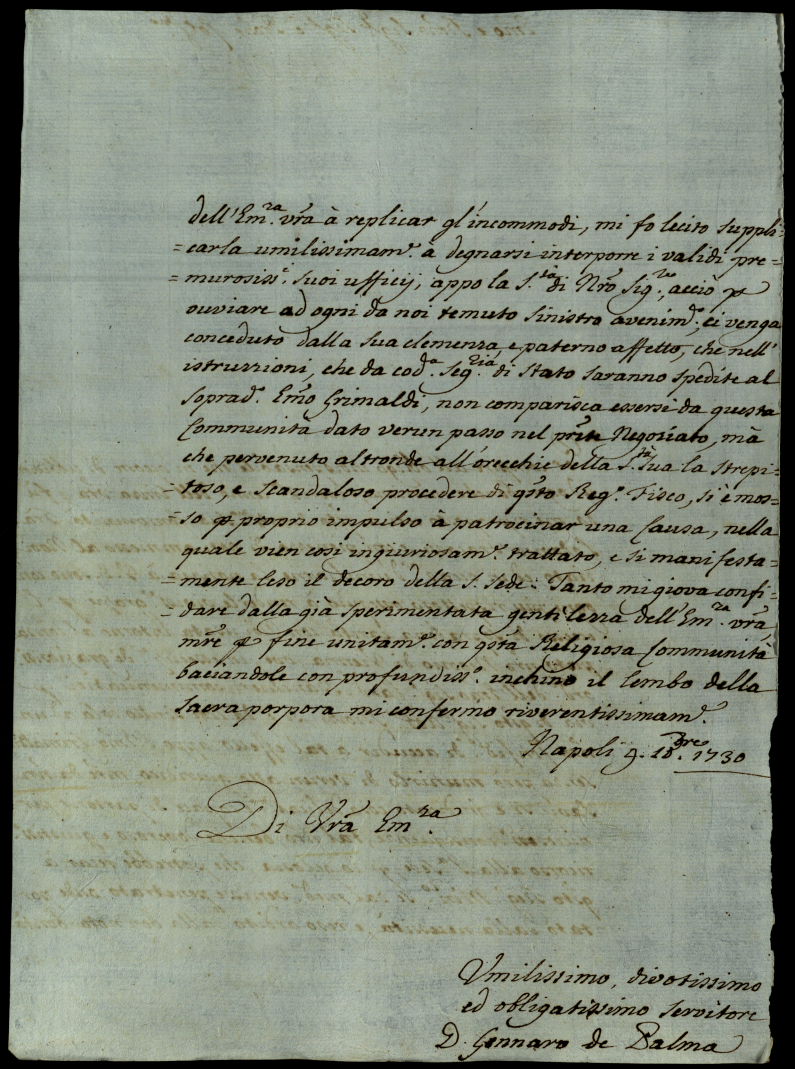 dell'Em.ᶻᵃ vrã à replicar gl'incommodi, mi fo lecito suppli=
=carla umilissimam.ᵉ à degnarsi interporre i validi pre=
=murosiss.ⁱ suoi ufficij, appo la S.ᵗᵃ di Nrõ Sig.ʳᵉ, acciò p
ouviare ad ogni da noi temuto sinistro avenim.ᵒ ci venga
conceduto dalla sua clemenza, e paterno affetto, che nell'
istruzzioni, che da cod.ᵃ Seg.ʳⁱᵃ di Stato saranno spedite al
soprad.ᵒ Emõ Grimaldi, non comparisca essersi da questa
Communità dato verun passo nel prñte Negoziato, mà
che pervenuto altronde all'orecchie della S.ᵗᵃ Sua la strepi=
=toso, e scandaloso procedere di qsto Reg.ᵒ Fisco, si è mos=
=so p proprio impulso à patrocinar una Causa, nella
quale vien così ingiuriosam.ᵉ trattato, e si manifesta=
=mente leso il decoro della S. Sede: Tanto mi giova confi=
=dare dalla già sperimentata gentilezza dell'Em.ᶻᵃ vrã,
mrẽ p fine unitam.ᵉ con qstã Religiosa Communità
baciandole con profundiss.ᵒ inchino il lembo della
sacra porpora mi confermo riverentissimam.ᵉ
Napoli 9. 10.ᵇʳᵉ 1730
Di Vrã Em.ᶻᵃ
Umilissimo, divotissimo
ed obligatissimo servitore
D. Gennaro de Palma